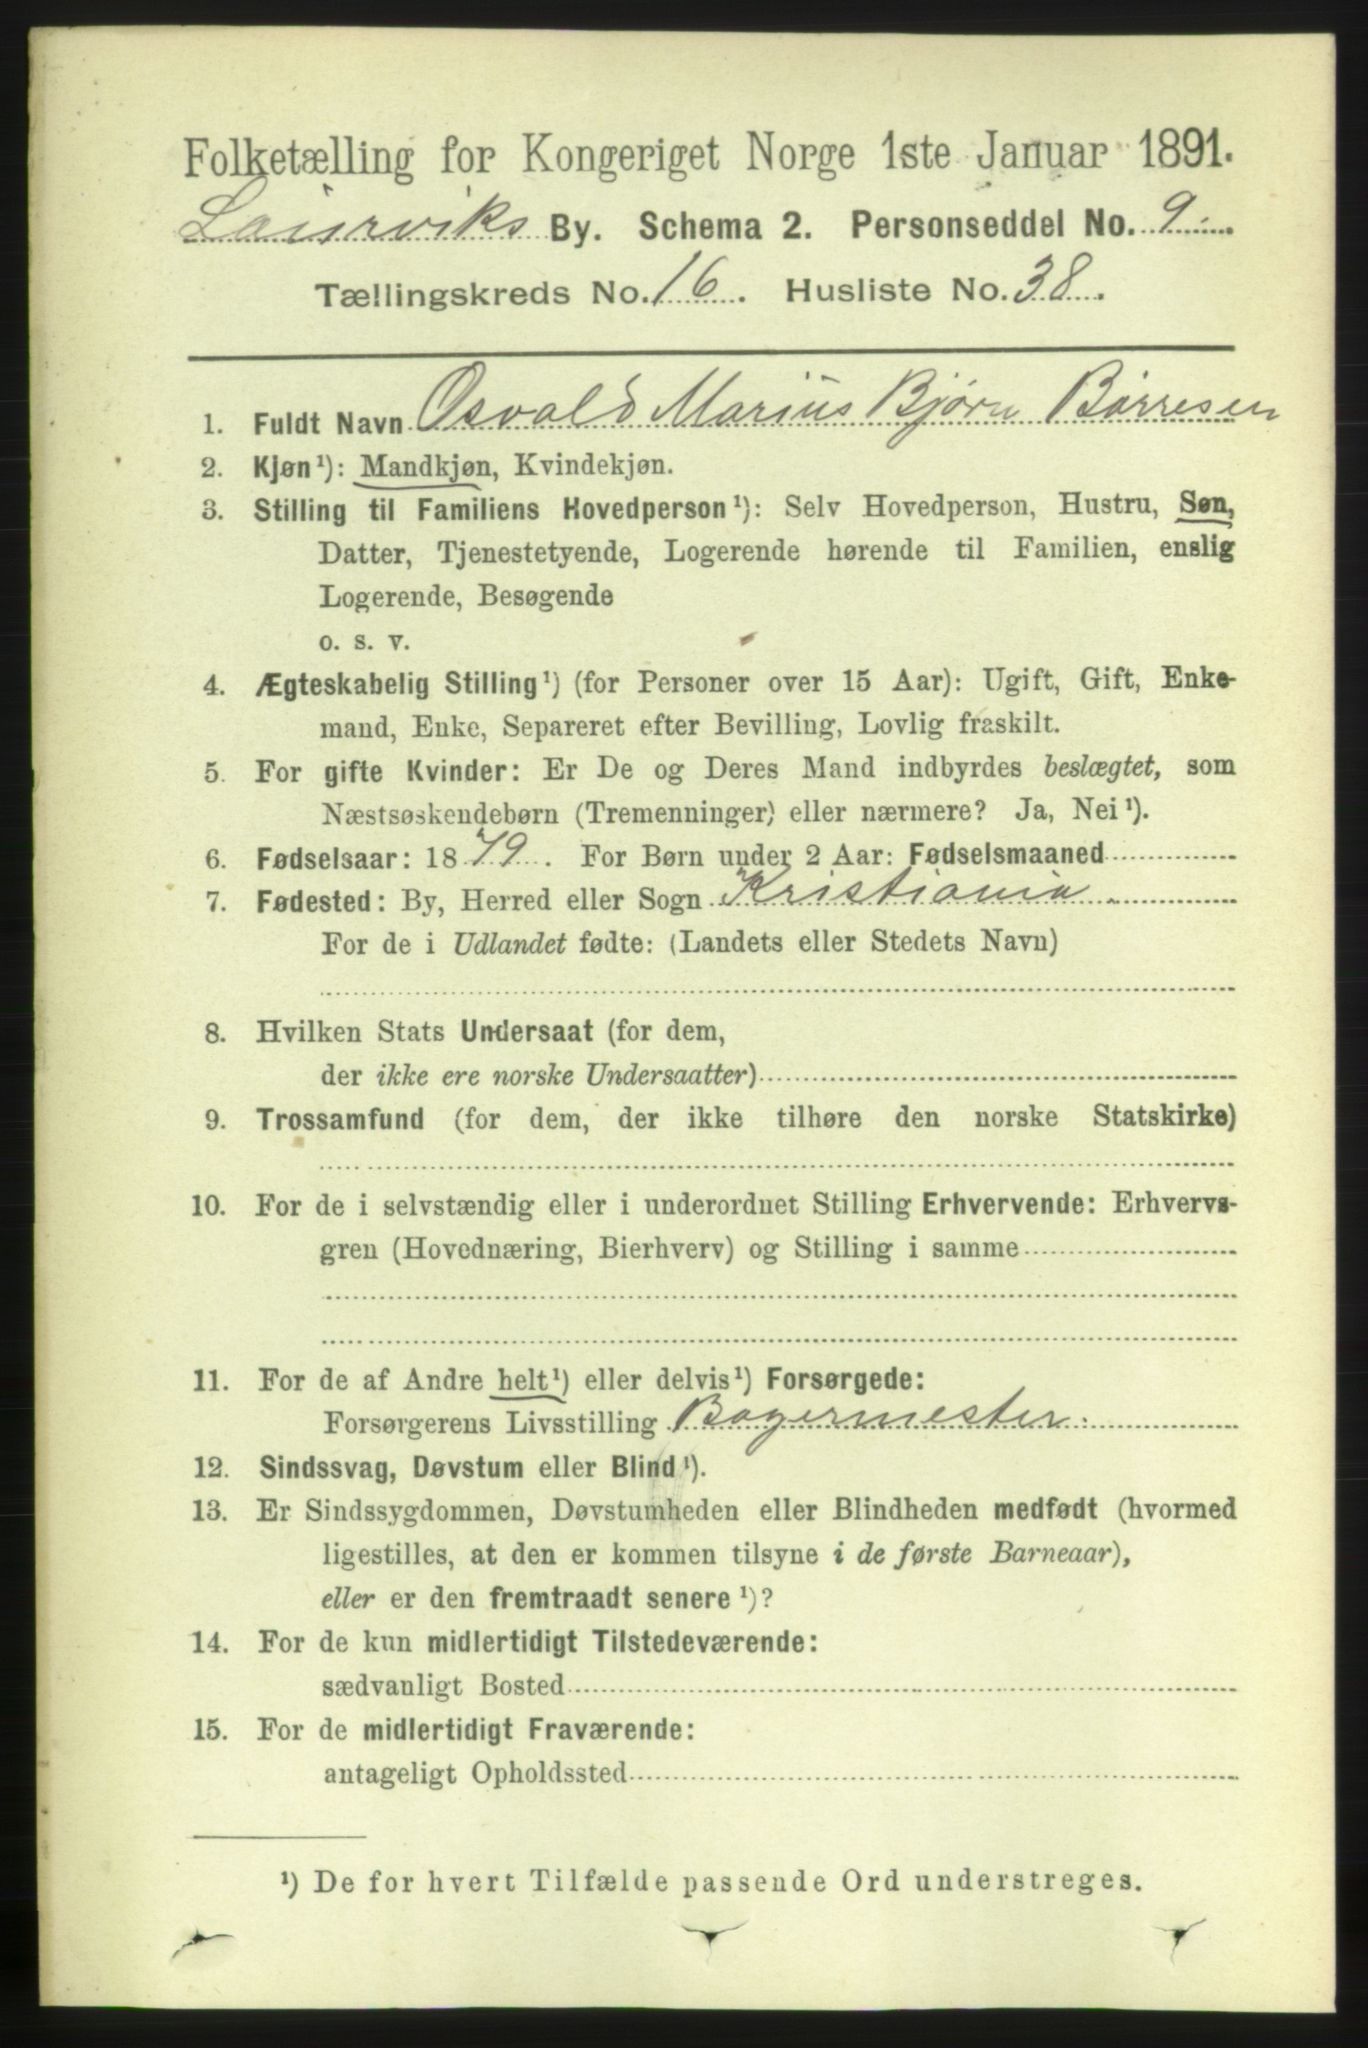 Folketælling for Kongeriget Norge 1ste Januar 1891.
Laurviks By. Schema 2. Personseddel No. 9
Tællingskreds No. 16. Husliste No. 38.
1. Fuldt Navn Osvald Marius Bjørn Børresen
2. Kjøn¹): Mandkjøn, Kvindekjøn.
3. Stilling til Familiens Hovedperson¹): Selv Hovedperson, Hustru, Søn,
Datter, Tjenestetyende, Logerende hørende til Familien, enslig
Logerende, Besøgende
o. s. v.
4. Ægteskabelig Stilling¹) (for Personer over 15 Aar): Ugift, Gift, Enke-
mand, Enke, Separeret efter Bevilling, Lovlig fraskilt.
5. For gifte Kvinder: Er De og Deres Mand indbyrdes beslægtet, som
Næstsøskendebørn (Tremenninger) eller nærmere? Ja, Nei¹).
6. Fødselsaar: 1879. For Børn under 2 Aar: Fødselsmaaned
7. Fødested: By, Herred eller Sogn Kristiania
For de i Udlandet fødte: (Landets eller Stedets Navn)
8. Hvilken Stats Undersaat (for dem,
der ikke ere norske Undersaatter)
9. Trossamfund (for dem, der ikke tilhøre den norske Statskirke)
10. For de i selvstændig eller i underordnet Stilling Erhvervende: Erhvervs-
gren (Hovednæring, Bierhverv) og Stilling i samme
11. For de af Andre helt¹) eller delvis¹) Forsørgede:
Forsørgerens Livsstilling Bagermester
12. Sindssvag, Døvstum eller Blind¹).
13. Er Sindssygdommen, Døvstumheden eller Blindheden medfødt (hvormed
ligestilles, at den er kommen tilsyne i de første Barneaar),
eller er den fremtraadt senere¹)?
14. For de kun midlertidigt Tilstedeværende:
sædvanligt Bosted
15. For de midlertidigt Fraværende:
antageligt Opholdssted
¹) De for hvert Tilfælde passende Ord understreges.